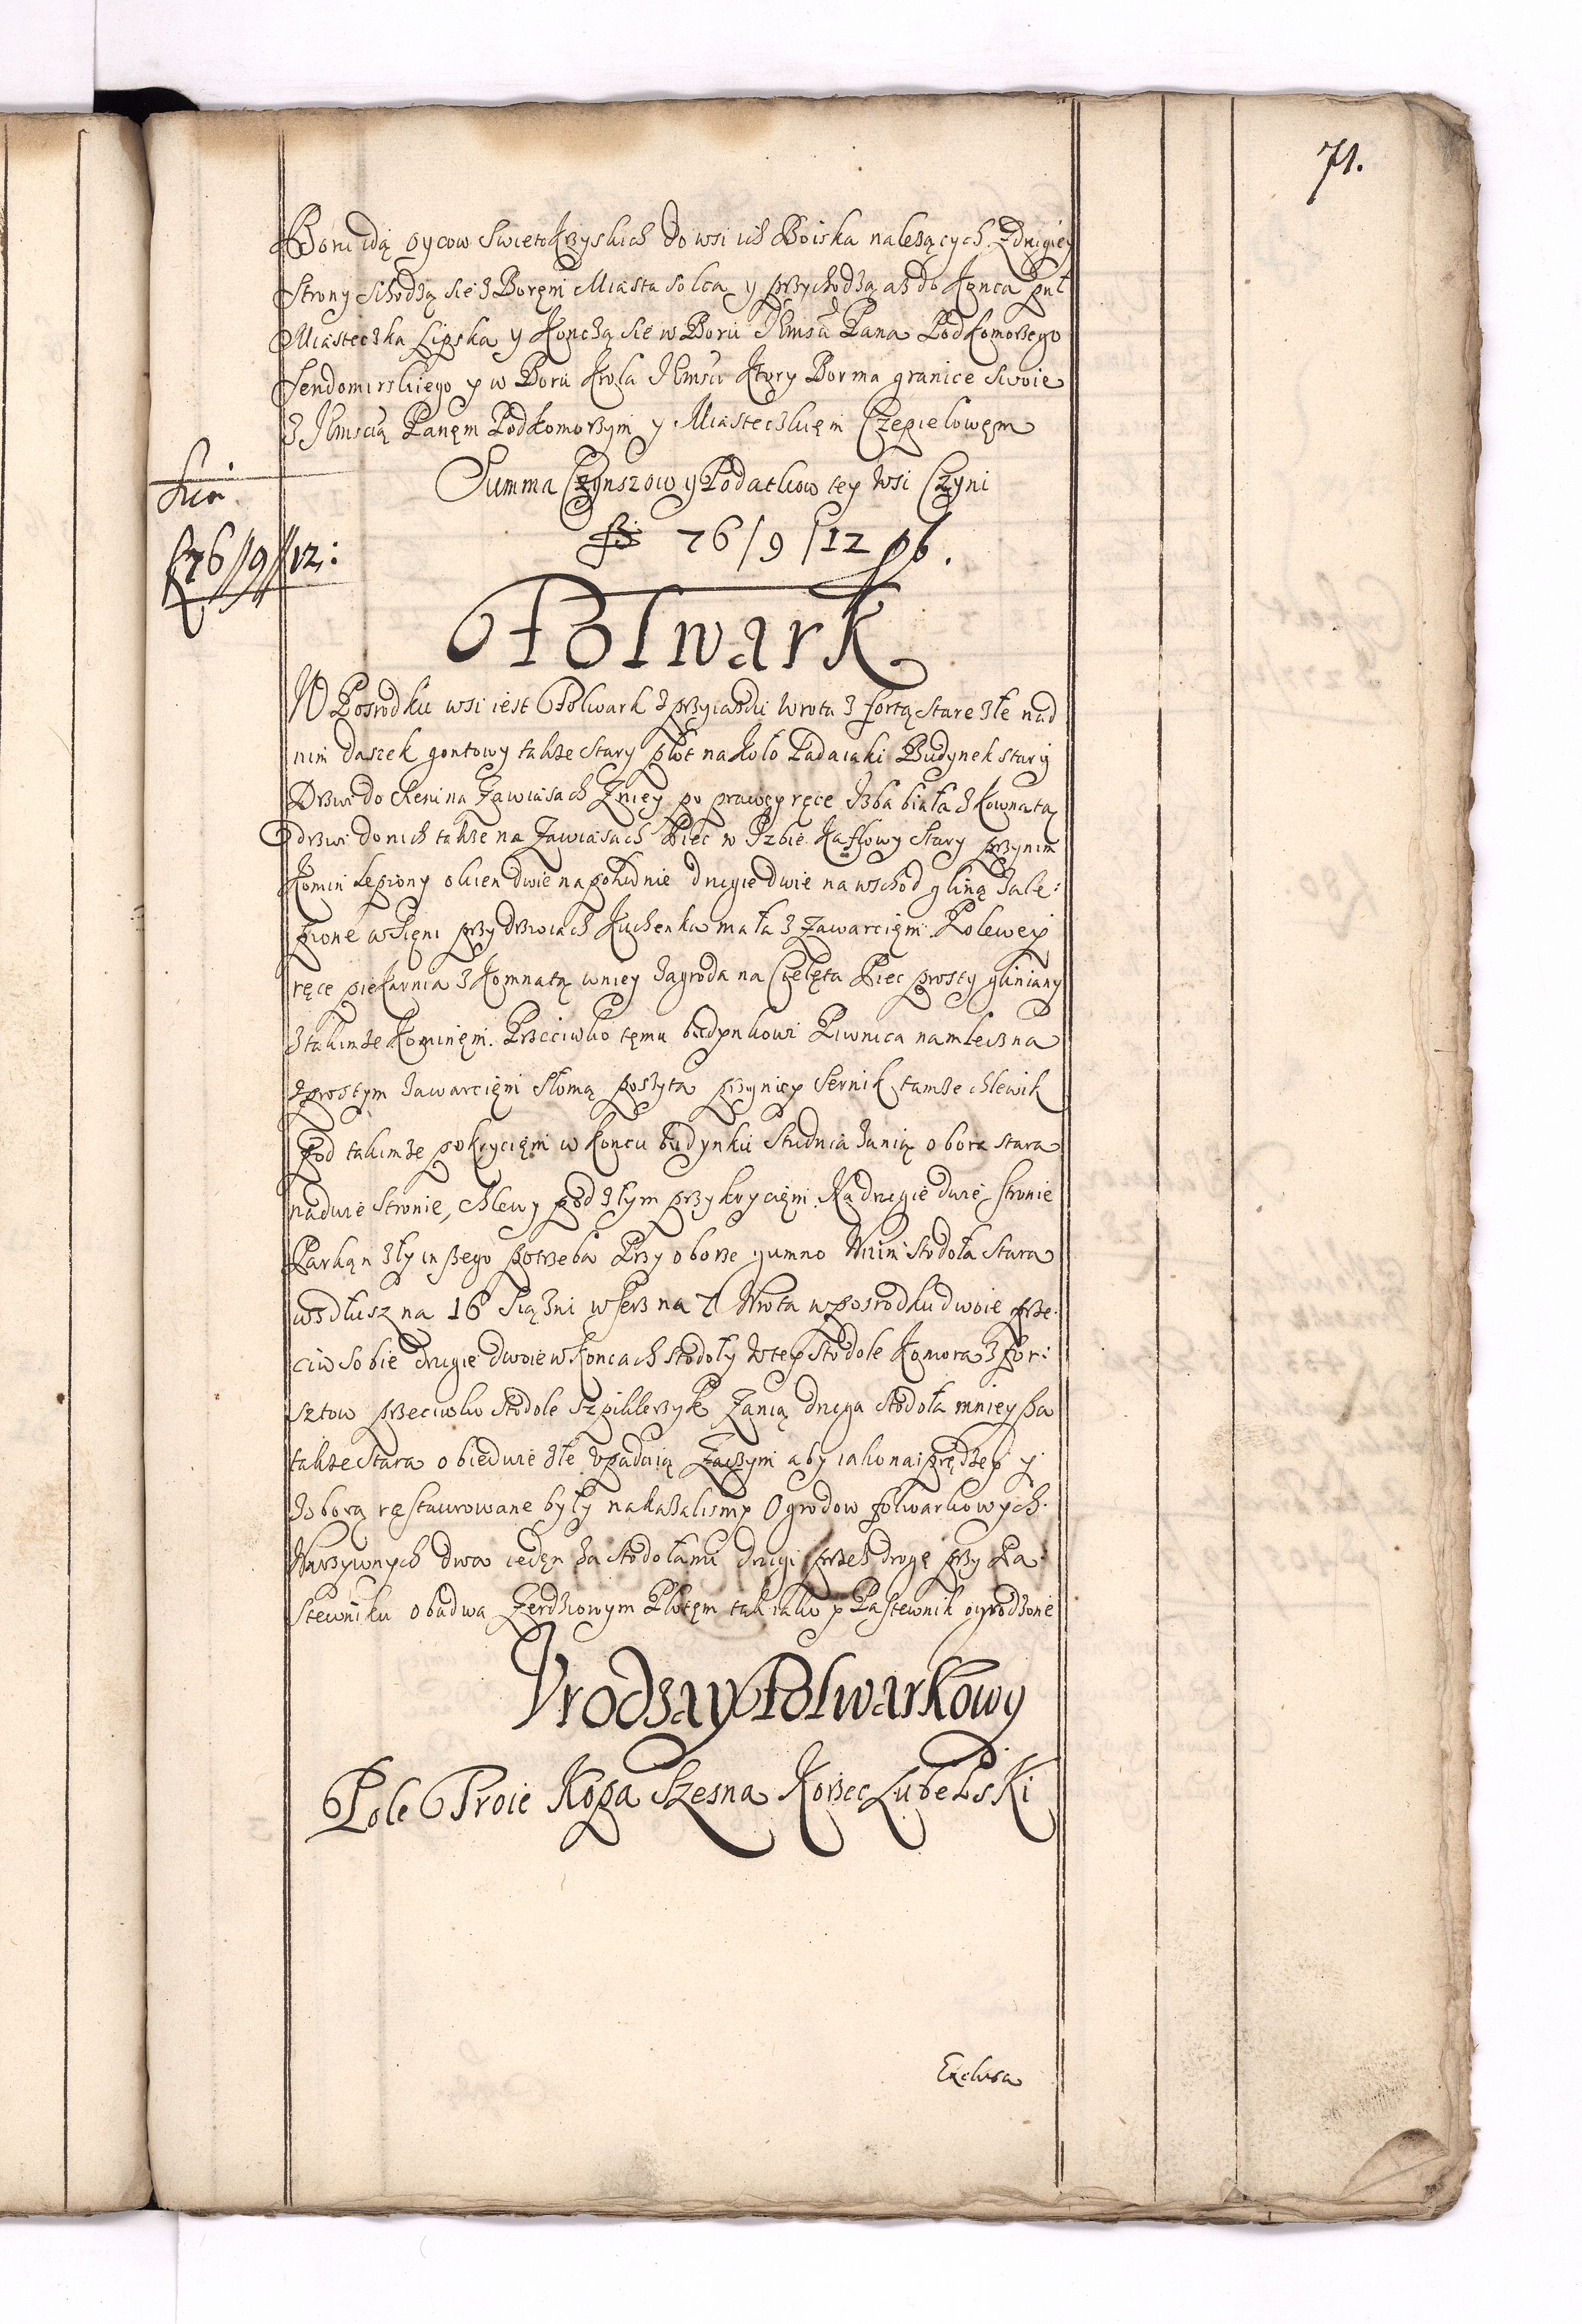 71.
Boru idą oycow SwietoKrzyskich do wsi ich Boiska należących, Zdrugiey
Strony schodzą sie z Borem Miasta Solca y przychodzą asz do Konca
Miasteczka Lipska y Konczą sie w Boru Pana PodKomorzego
Sendomirskiego y w Boru Krola Ktory Bor ma granice swoie
z Panem Podkomorzym y Miasteczkiem Czepielowem
Summa Czynszow y Podatkow tey Wsi Czyni
76/9/12
76//9//12:
Folwark
W Posrodku wsi iest Folwark z przyiazdu Wrota z fortą Stare złe nad
nim daszek gontowy także Stary płot na Koło Padaiaki Budynek stary
Drzwi do Sieni na Zawiasach Zniey po prawey ręce Izba biała z Komnatą
drzwi do nich także na Zawiasach Piec w Izbie Kaflowy Stary przynim
Komin Lepiony okien dwie na południe drugie dwie na wschod gliną zale:
pione w Sieni przy drzwiach Kuchenka mała z zawarciem. Po lewey
ręce piekarnia z Komnatą wniey zagroda na Cielęta Piec prosty gliniany
z takimże Kominem. Przeciwko temu budynkowi Piwnica na mleczna
z prostym zawarciem Słomą poszyta przyniey Sernik tamże chlewik
Pod takimże pokryciem w koncu budynku Studnia zanią obora stara
na dwie Stronie, chlewy pod złym przykryciem. Na drugie dwie stronie
Parkan zły inszego potrzeba Przy oborze gumno W nim stodoła Stara
wzdłusz na 16 Siążni wszerz na 7 Wrota w posrodku dwoie prze:
ciw Sobie drugie dwoie w Koncach stodoły W tey Stodole Komora z for:
sztow przeciwko Stodole szpiklerzyk Zanią druga Stodoła mnieysza
także Stara obiedwie złe upadaią Zaczym aby iako nai prędzey y
z oborą restaurowane były nakazalismy Ogrodow folwarkowych
Warzywnych dwa ieden za Stodołami drugi przez drogę przy Pa:
stewniku obadwa Zerdziowym Płotem tak iako y Pastewnik ogrodzone
Vrodzay Folwarkowy
Pole Troie Kopa Szesna Korzec Lubelski